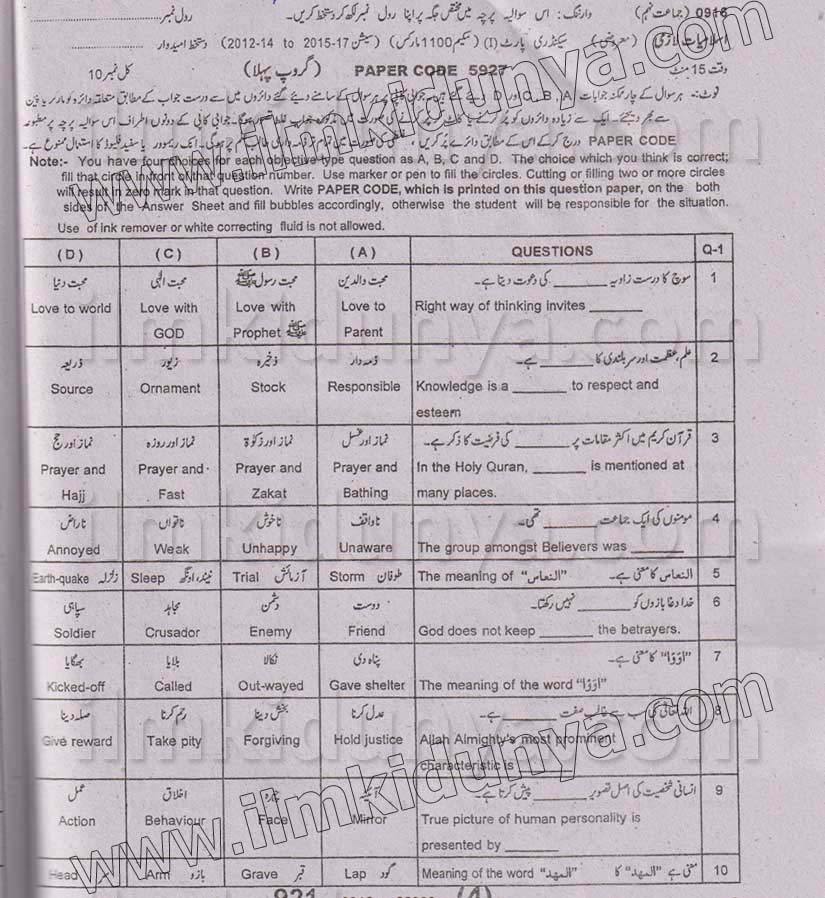 0916 (جماعت نہم) وارننگ: اس سوالیہ پرچہ میں مختص جگہ پر اپنا رول نمبر لکھ کر دستخط کریں۔ رول نمبر
اسلامیات لازمی (معروضی) سیکنڈری پارٹ (I) (سکیم 1100 مارکس) (سیشن 2015-17 to 2012-14) دستخط امیدوار
وقت 15 منٹ PAPER CODE 5927 (گروپ پہلا) کل نمبر 10
نوٹ:- ہر سوال کے چار ممکنہ جوابات A، B، C اور D دیئے گئے ہیں۔ جوابی کاپی پر ہر سوال کے سامنے دیئے گئے دائروں میں سے درست جواب کے مطابق متعلقہ دائرہ کو مارکر یا پین
سے بھر دیجئے۔ ایک سے زیادہ دائروں کو پُر کرنے یا کاٹ کر پُر کرنے کی صورت میں مذکورہ جواب غلط تصور ہو گا۔ جوابی کاپی کے دونوں اطراف اس سوالیہ پرچہ پر مطبوعہ
PAPER CODE درج کر کے اس کے مطابق دائرے پُر کریں، کی صورت میں تمام تر ذمہ داری طالب علم پر ہو گی۔ انک ریموور یا سفید فلیوڈ کا استعمال ممنوع ہے۔
Note:- You have four choices for each objective type question as A, B, C and D. The choice which you think is correct;
fill that circle in front of that question number. Use marker or pen to fill the circles. Cutting or filling two or more circles
will result in zero mark in that question. Write PAPER CODE, which is printed on this question paper, on the both
sides of the Answer Sheet and fill bubbles accordingly, otherwise the student will be responsible for the situation.
Use of ink remover or white correcting fluid is not allowed.
(D) (C) (B) (A) QUESTIONS Q-1
محبت دنیا محبت الٰہی محبت رسول ﷺ محبت والدین سوچ کا درست زاویہ ______ کی دعوت دیتا ہے۔ 1
Love to world Love with Love with Love to Right way of thinking invites ______
GOD Prophet ﷺ Parent
ذریعہ زیور ذخیرہ ذمہ دار علم، عظمت اور سربلندی کا ______ ہے۔ 2
Source Ornament Stock Responsible Knowledge is a ______ to respect and
esteem
نماز اور حج نماز اور روزہ نماز اور زکوٰۃ نماز اور غسل قرآن کریم میں اکثر مقامات پر ______ کی فرضیت کا ذکر ہے۔ 3
Prayer and Prayer and Prayer and Prayer and In the Holy Quran, ______ is mentioned at
Hajj Fast Zakat Bathing many places.
ناراض ناتواں ناخوش ناواقف مومنوں کی ایک جماعت ______ تھی۔ 4
Annoyed Weak Unhappy Unaware The group amongst Believers was ______
Earth-quake زلزلہ Sleep نیند، اونگھ Trial آزمائش Storm طوفان The meaning of "النعاس" النعاس کا معنی ہے۔ 5
سپاہی مجاہد دشمن دوست خدا دغا بازوں کو ______ نہیں رکھتا۔ 6
Soldier Crusador Enemy Friend God does not keep ______ the betrayers.
بھگایا بلایا نکالا پناہ دی "اٰوَوْا" کا معنی ہے۔ 7
Kicked-off Called Out-wayed Gave shelter The meaning of the word "اٰوَوْا"
صلہ دینا رحم کرنا بخش دینا عدل کرنا اللہ تعالیٰ کی سب سے غالب صفت ______ ہے۔ 8
Give reward Take pity Forgiving Hold justice Allah Almighty's most prominent
characteristic is ______
عمل اخلاق چہرہ آئینہ انسانی شخصیت کی اصل تصویر ______ پیش کرتا ہے۔ 9
Action Behaviour Face Mirror True picture of human personality is
presented by ______
Head سر Arm بازو Grave قبر Lap گود Meaning of the word "المھد" معنی ہے "المھد" کا 10
921 (4)
www.ilmkidunya.com
ilmkidunya.com
ilmkidunya.com
ilmkidunya.com
www.ilmkidunya.com